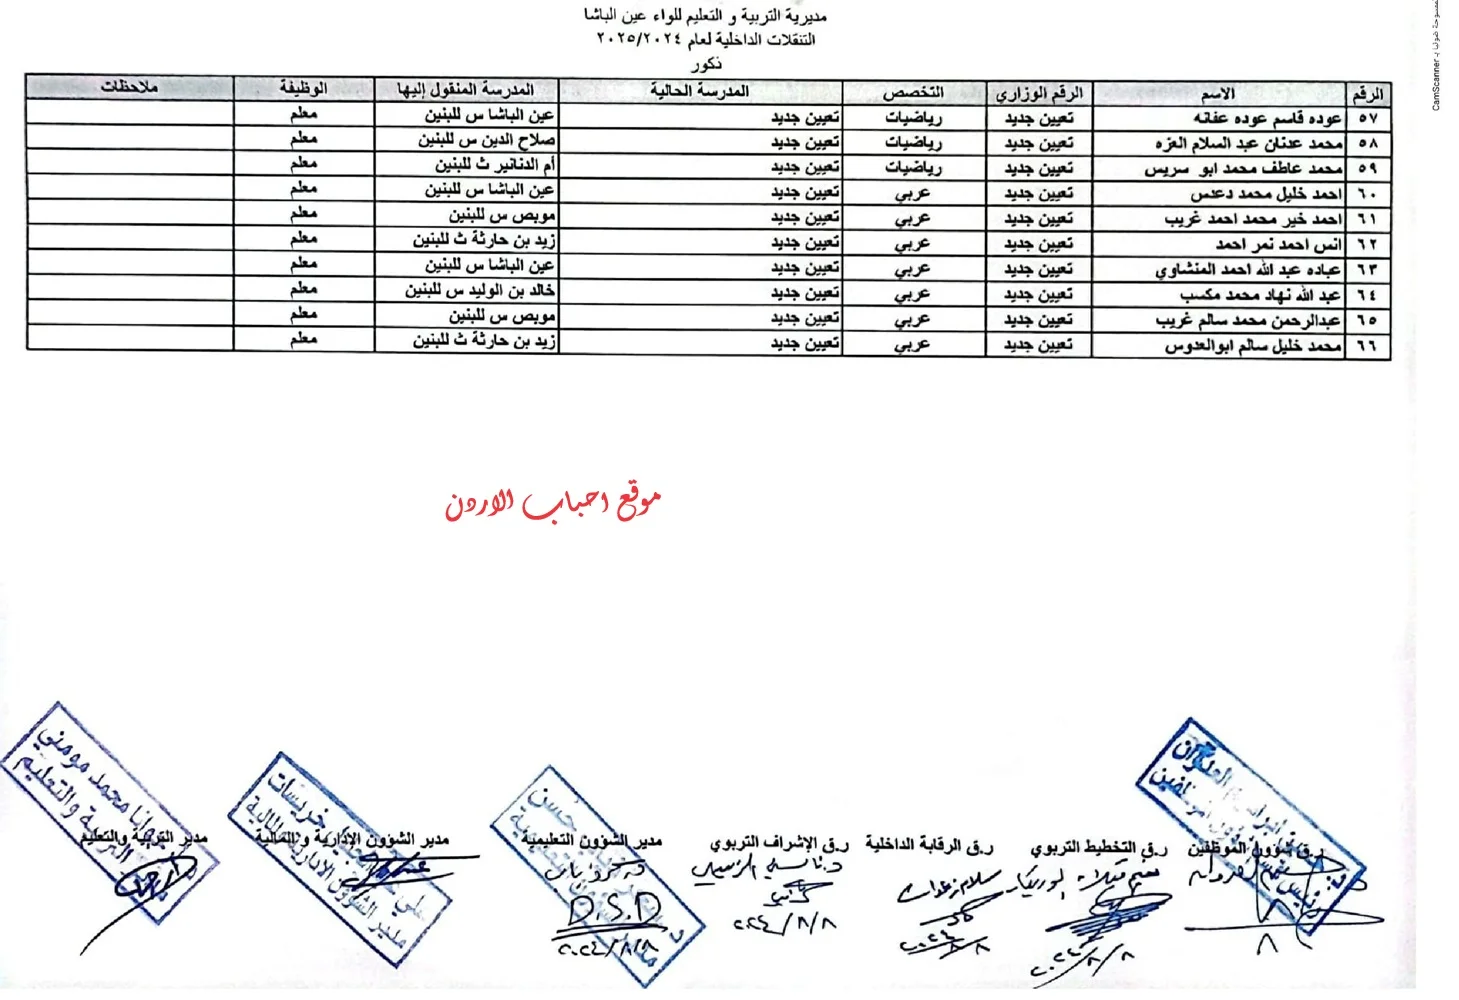 مديرية التربية و التعليم للواء عين الباشا
التنقلات الداخلية لعام ٢٠٢٥/٢٠٢٤
ذكور
الرقم الاسم الرقم الوزاري التخصص المدرسة الحالية المدرسة المنقول إليها الوظيفة ملاحظات
٥٧ عوده قاسم عوده عفانه تعيين جديد رياضيات تعيين جديد عين الباشا س للبنين معلم
٥٨ محمد عدنان عبد السلام العزه تعيين جديد رياضيات تعيين جديد صلاح الدين س للبنين معلم
٥٩ محمد عاطف محمد ابو سريس تعيين جديد رياضيات تعيين جديد أم الدنانير ث للبنين معلم
٦٠ احمد خليل محمد دعدس تعيين جديد عربي تعيين جديد عين الباشا س للبنين معلم
٦١ احمد خير محمد احمد غريب تعيين جديد عربي تعيين جديد موبص س للبنين معلم
٦٢ انس احمد نمر احمد تعيين جديد عربي تعيين جديد زيد بن حارثة ث للبنين معلم
٦٣ عباده عبد الله احمد المنشاوي تعيين جديد عربي تعيين جديد عين الباشا س للبنين معلم
٦٤ عبد الله نهاد محمد مكسب تعيين جديد عربي تعيين جديد خالد بن الوليد س للبنين معلم
٦٥ عبدالرحمن محمد سالم غريب تعيين جديد عربي تعيين جديد موبص س للبنين معلم
٦٦ محمد خليل سالم ابوالعدوس تعيين جديد عربي تعيين جديد زيد بن حارثة ث للبنين معلم
موقع احباب الاردن
ر.ق شؤون الموظفين ر.ق التخطيط التربوي ر.ق الرقابة الداخلية ر.ق الإشراف التربوي مدير الشؤون التعليمية مدير الشؤون الإدارية والمالية مدير التربية والتعليم
٢٠٢٤/٨/٨ ٢٠٢٤/٨/٨ ٢٠٢٤/٨/٨ ٢٠٢٤/٨/٨
محمد مومني
التربية والتعليم
خريسات
مدير الشؤون الادارية والمالية
CamScanner